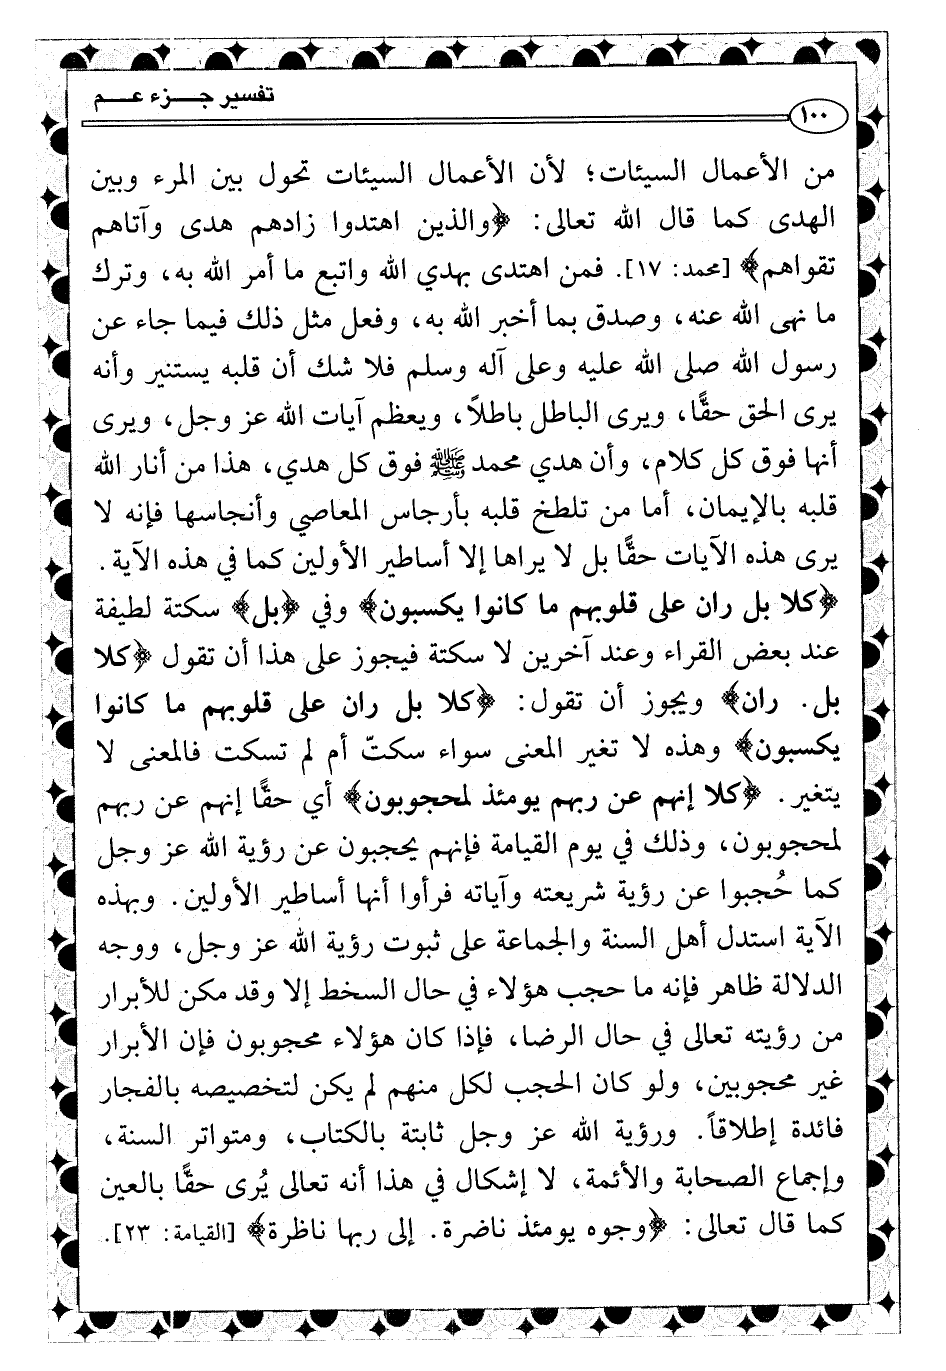 تفسير جــزء عــم
١٠٠
من الأعمال السيئات؛ لأن الأعمال السيئات تحول بين المرء وبين
الهدى كما قال الله تعالى: ﴿والذين اهتدوا زادهم هدى وآتاهم
تقواهم﴾ [محمد: ١٧]. فمن اهتدى بهدي الله واتبع ما أمر الله به، وترك
ما نهى الله عنه، وصدق بما أخبر الله به، وفعل مثل ذلك فيما جاء عن
رسول الله صلى الله عليه وعلى آله وسلم فلا شك أن قلبه يستنير وأنه
يرى الحق حقًّا، ويرى الباطل باطلاً، ويعظم آيات الله عز وجل، ويرى
أنها فوق كل كلام، وأن هدي محمد ﷺ فوق كل هدي، هذا من أنار الله
قلبه بالإيمان، أما من تلطخ قلبه بأرجاس المعاصي وأنجاسها فإنه لا
يرى هذه الآيات حقًّا بل لا يراها إلا أساطير الأولين كما في هذه الآية.
﴿كلا بل ران على قلوبهم ما كانوا يكسبون﴾ وفي ﴿بل﴾ سكتة لطيفة
عند بعض القراء وعند آخرين لا سكتة فيجوز على هذا أن تقول ﴿كلا
بل. ران﴾ ويجوز أن تقول: ﴿كلا بل ران على قلوبهم ما كانوا
يكسبون﴾ وهذه لا تغير المعنى سواء سكتّ أم لم تسكت فالمعنى لا
يتغير. ﴿كلا إنهم عن ربهم يومئذ لمحجوبون﴾ أي حقًّا إنهم عن ربهم
لمحجوبون، وذلك في يوم القيامة فإنهم يحجبون عن رؤية الله عز وجل
كما حُجبوا عن رؤية شريعته وآياته فرأوا أنها أساطير الأولين. وبهذه
الآية استدل أهل السنة والجماعة على ثبوت رؤية الله عز وجل، ووجه
الدلالة ظاهر فإنه ما حجب هؤلاء في حال السخط إلا وقد مكن للأبرار
من رؤيته تعالى في حال الرضا، فإذا كان هؤلاء محجوبون فإن الأبرار
غير محجوبين، ولو كان الحجب لكل منهم لم يكن لتخصيصه بالفجار
فائدة إطلاقاً. ورؤية الله عز وجل ثابتة بالكتاب، ومتواتر السنة،
وإجماع الصحابة والأئمة، لا إشكال في هذا أنه تعالى يُرى حقًّا بالعين
كما قال تعالى: ﴿وجوه يومئذ ناضرة. إلى ربها ناظرة﴾ [القيامة: ٢٣].